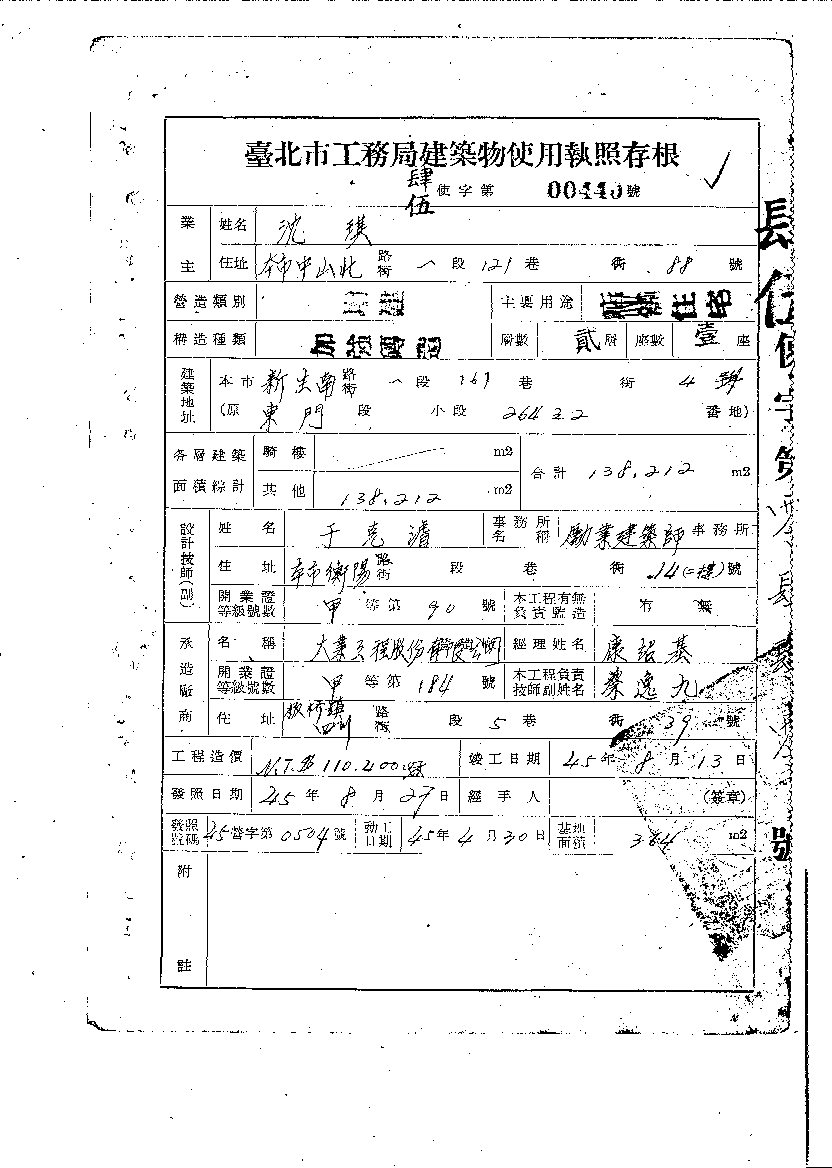 臺北市工務局建築物使用執照存根
肆伍使字第 00440號
業主 姓名 沈琪
住址 本市中山北路街一段121巷 街 88 號
營造類別 主要用途 住宅
構造種類 加強磚造 層數 貳層 座數 壹座
建築地址 本市 新生南路街一段161巷 街 4 號
(原 東門 段 小段 264 番地)
各層建築面積綜計 騎樓 m2 合計 138.212 m2
其他 138.212 m2
設計技師(副) 姓名 于克濬 事務所名稱 勵業建築師事務所
住址 本市衡陽路街 段 巷 街 14(二樓)號
開業證等級號數 甲等第 90 號 本工程有無負責監造 有 無
承造廠商 名稱 大業工程股份有限公司 經理姓名 康 基
開業證等級號數 甲等第 184 號 本工程負責技師副姓名 蔡逸九
住址 板橋鎮 路街 段 5 巷 街 39 號
工程造價 N.T.$ 110.400 竣工日期 45年 8月 13日
發照日期 45年 8月 29日 經手人 (簽章)
發照號碼 45營字第0504號 動工日期 45年4月30日 基地面積 364 m2
附註
使字第
號